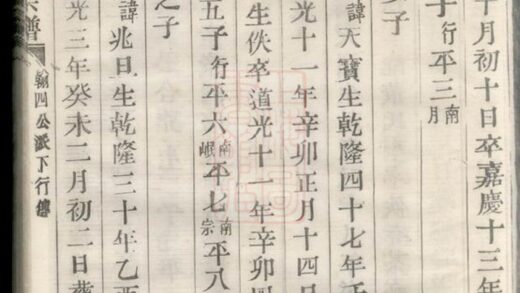 十月初十日卒嘉慶十三年
子行平三南月
子
諱天寶生乾隆四十七年
光十一年辛卯正月十四日
生佚卒道光十一年辛卯四
五子行平六南岷平七南宗平八
之子
諱兆旦生乾隆三十年乙酉
光三年癸未二月初二日
譜
翰四公派下行傳